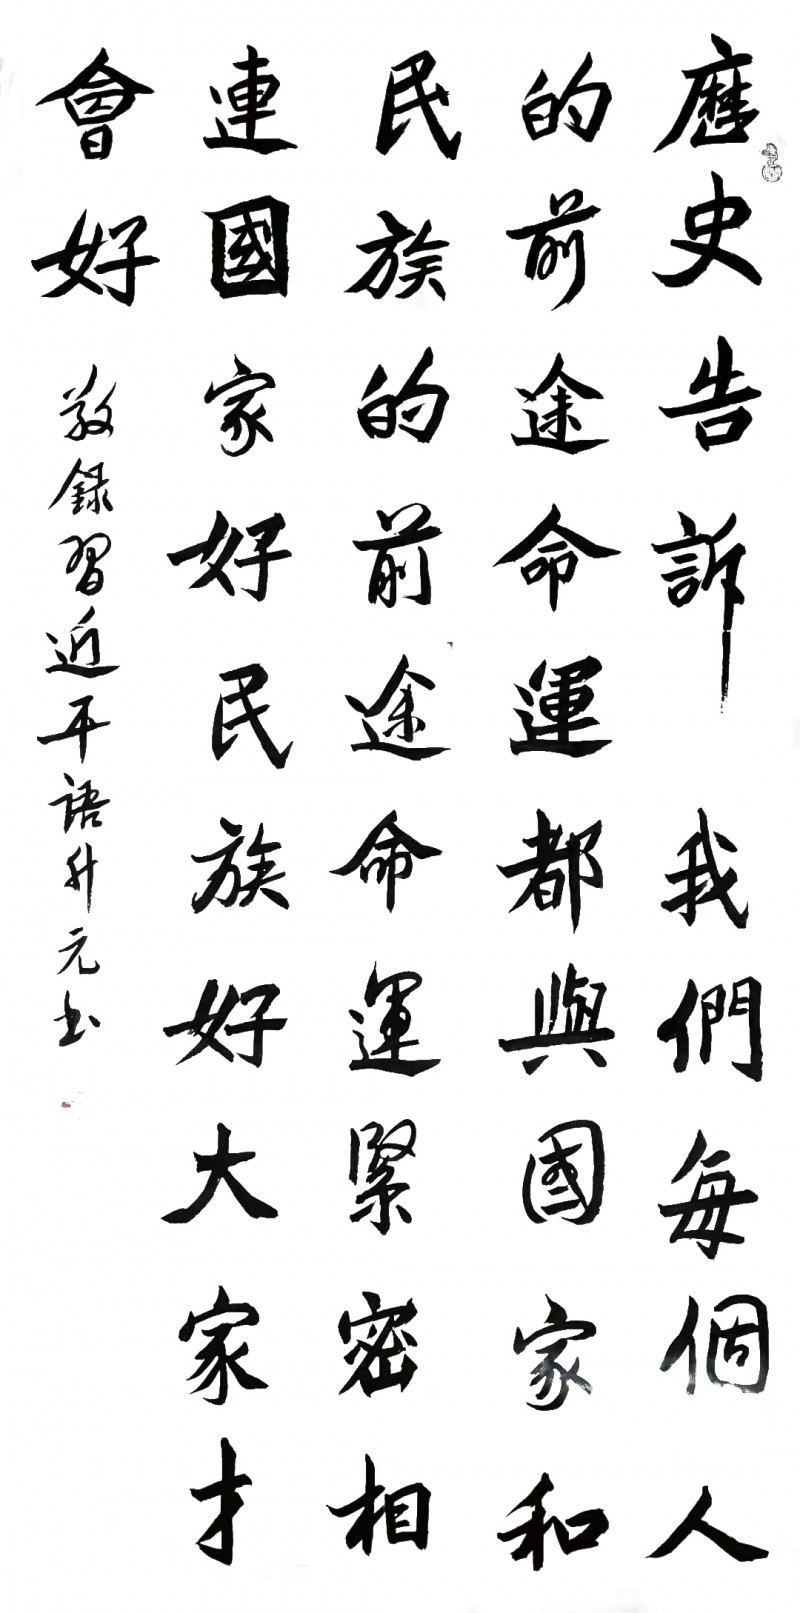 歷史告訴我們每個人
的前途命運都與國家和
民族的前途命運緊密相
連國家好民族好大家才
會好
敬錄習近平語升元书